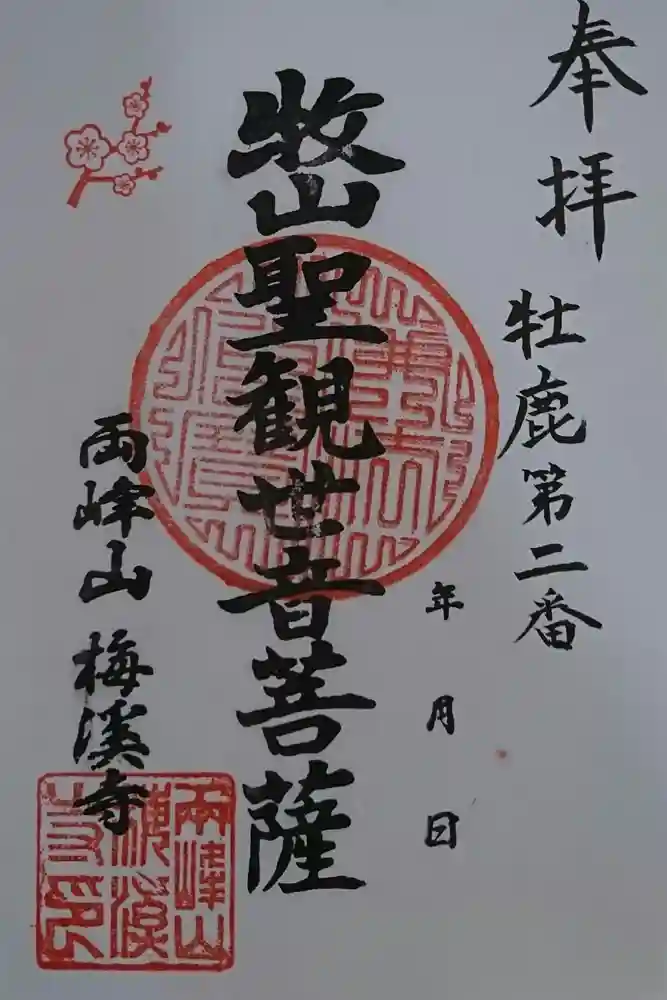 奉拝
牡鹿第二番
年 月 日
牧山聖観世音菩薩
両峰山 梅溪寺
両峰山
梅渓
寺印